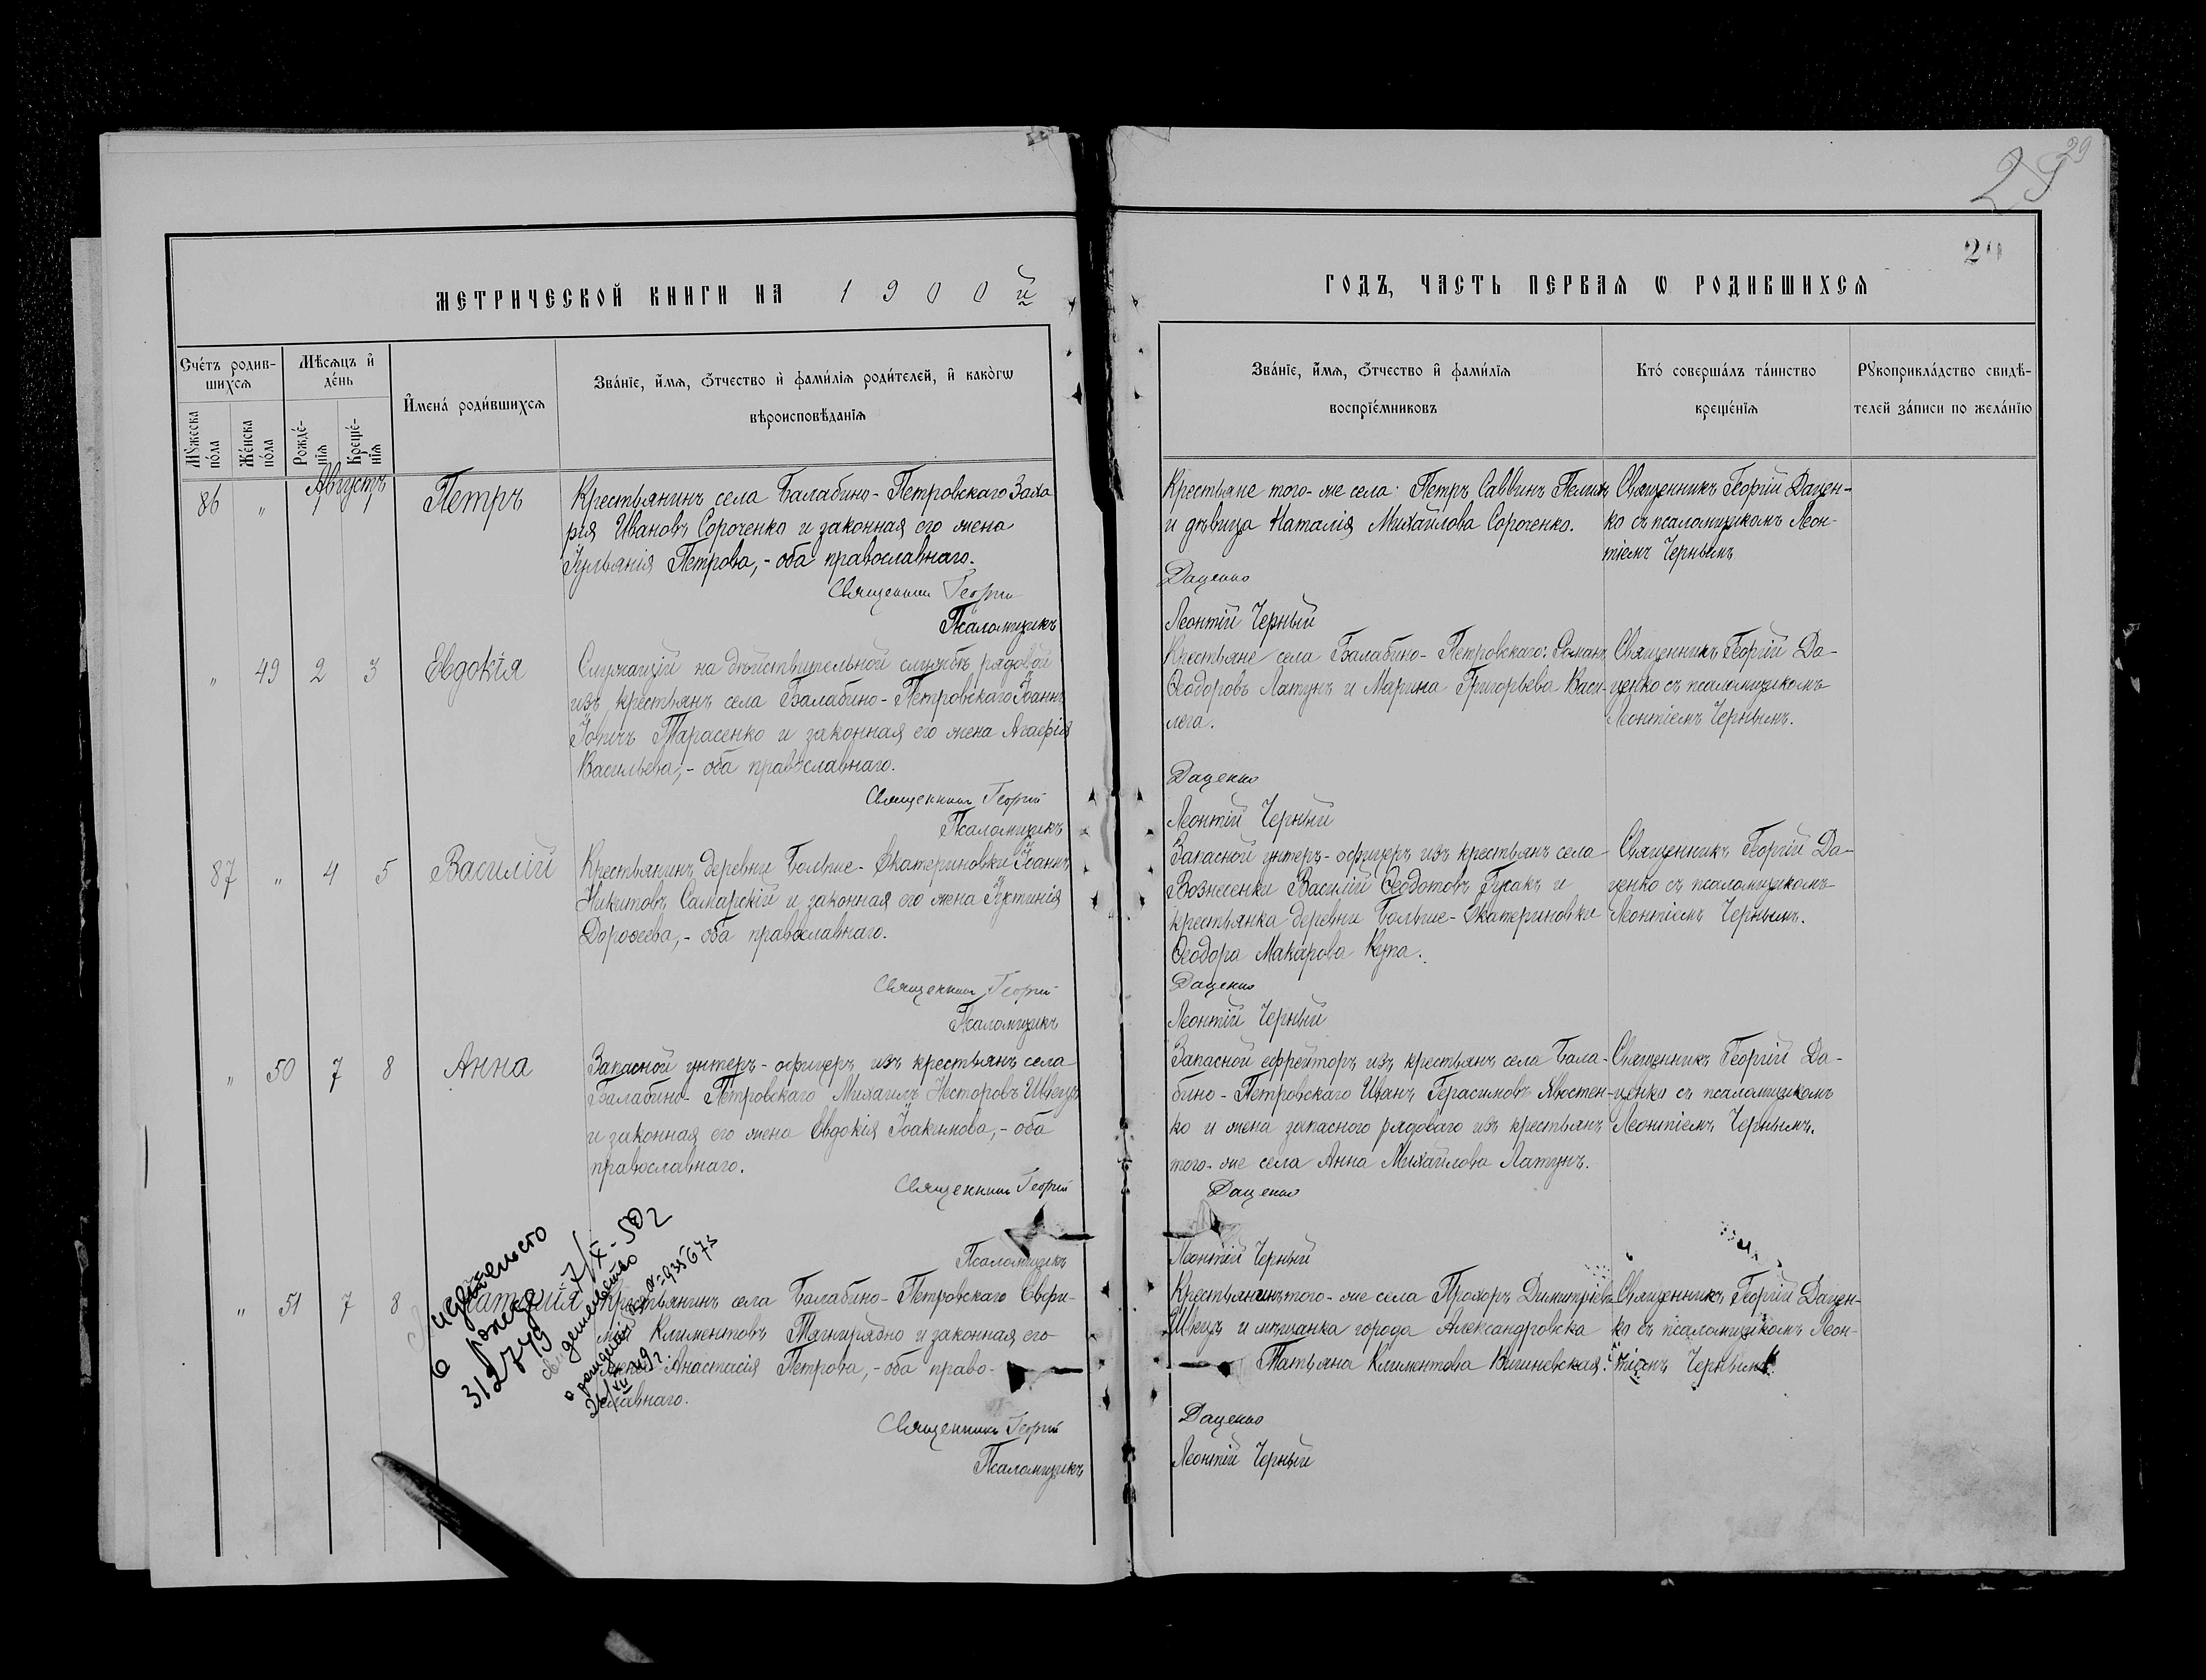 29
29
МЕТРИЧЕСКОЙ КНИГИ НА 1900й
ГОДЪ, ЧАСТЬ ПЕРВАѦ Ѡ РОДИВШИХСѦ
Счетъ родив-
шихсѧ
Мѹжеска
пола
Женска
пола
Мѣсѧцъ и
день
Рожде-
нїѧ
Креще-
нїѧ
Имена родившихсѧ
Званїе, имѧ, ѻтчество и фамилїѧ родителей, и какогѡ
вѣроисповѣданїѧ
Званїе, имѧ, ѻтчество и фамилїѧ
воспрїемниковъ
Кто совершалъ таинство
крещенїѧ
Рѹкоприкладство свидѣ-
телей записи по желанїю
Августъ
86 " 1 1 Петръ
Крестьянинъ села Балабино-Петровскаго Заха
рія Ивановъ Сороченко и законная его жена
Іуліанія Петрова,- оба православнаго.
Священникъ Георгій
Псаломщикъ
Крестьяне того-же села: Петръ Саввинъ
и дѣвица Наталія Михайлова Сороченко.
Даценко
Леонтій Черный
Священникъ Георгій Дацен-
ко съ псаломщикомъ Леон-
тіемъ Чернымъ
" 49 2 3 Евдокія
Служащій на дѣйствительной службѣ рядовой
изъ крестьянъ села Балабино-Петровскаго Іоаннъ
Тарасенко и законная его жена Агаѳія
Васильева,- оба православнаго.
Священникъ Георгій
Псаломщикъ
Крестьяне села Балабино-Петровскаго: Романъ
Ѳеодоровъ Латунъ и Марина Григорьева Васи-
лега.
Даценко
Леонтій Черный
Священникъ Георгій Да-
ценко съ псаломщикомъ
Леонтіемъ Чернымъ.
87 " 4 5 Василій
Крестьянинъ деревни Больше-Екатериновки Іоаннъ
Никитовъ Самарскій и законная его жена Іустинія
Дороѳеева,- оба православнаго.
Священникъ Георгій
Псаломщикъ
Запасной унтеръ-офицеръ изъ крестьянъ села
Вознесенки Василій Ѳеодотовъ Гусакъ и
крестьянка деревни Больше-Екатериновки
Ѳеодора Макарова Купа.
Даценко
Леонтій Черный
Священникъ Георгій Да-
ценко съ псаломщикомъ
Леонтіемъ Чернымъ.
" 50 7 8 Анна
Запасной унтеръ-офицеръ изъ крестьянъ села
Балабино-Петровскаго Михаилъ Несторовъ Швецъ
и законная его жена Евдокія Іоакимова,- оба
православнаго.
Священникъ Георгій
Псаломщикъ
Запасной ефрейторъ изъ крестьянъ села Бала-
бино-Петровскаго Иванъ Герасимовъ Явостен-
ко и жена запасного рядоваго изъ крестьянъ
того-же села Анна Михайлова Латунъ.
Даценко
Леонтій Черный
Священникъ Георгій Да-
ценко съ псаломщикомъ
Леонтіемъ Чернымъ.
" 51 7 8 Наталія
Крестьянинъ села Балабино-Петровскаго Евфи-
мій Климентовъ Тягнирядно и законная его
жена Анастасія Петрова,- оба право-
славнаго.
Священникъ Георгій
Псаломщикъ
Крестьянинъ того-же села Прохоръ Димитріевъ
Швецъ и мѣщанка города Александровска
Татьяна Климентова Вишневская.
Даценко
Леонтій Черный
Священникъ Георгій Дацен-
ко съ псаломщикомъ Леон-
тіемъ Чернымъ.
312749
7/X-50г